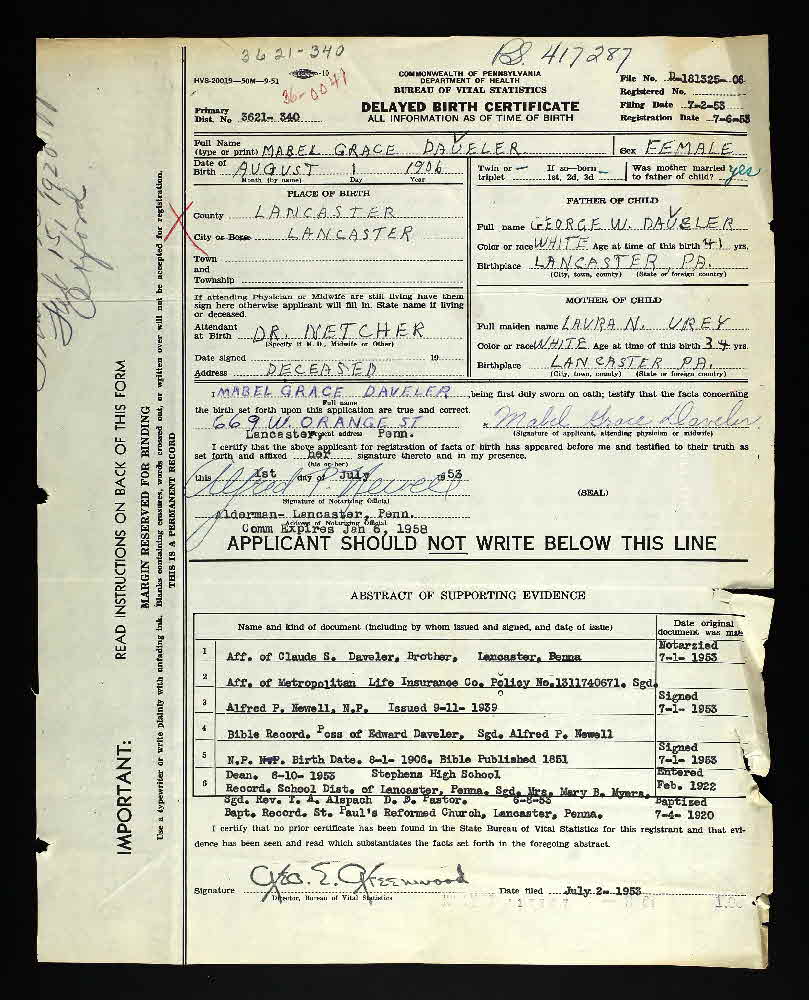 3621-340
BS. 417287
36-0041
HVS-20019—50M—9-51
COMMONWEALTH OF PENNSYLVANIA
DEPARTMENT OF HEALTH
BUREAU OF VITAL STATISTICS
File No. D-181325-06
Registered No.
Primary Dist. No 3621- 340
DELAYED BIRTH CERTIFICATE
ALL INFORMATION AS OF TIME OF BIRTH
Filing Date 7-2-53
Registration Date 7-6-53
Full Name (type or print) MABEL GRACE DAVELER Sex FEMALE
Date of Birth AUGUST 1 1906
Month (by name) Day Year
Twin or triplet — If so—born 1st, 2d, 3d — Was mother married to father of child? yes
PLACE OF BIRTH
County LANCASTER
City or Boro LANCASTER
Town and Township
FATHER OF CHILD
Full name GEORGE W. DAVELER
Color or race WHITE Age at time of this birth 41 yrs.
Birthplace LANCASTER, PA.
(City, town, county) (State or foreign country)
If attending Physician or Midwife are still living have them sign here otherwise applicant will fill in. State name if living or deceased.
Attendant at Birth DR. NETCHER
(Specify if M. D., Midwife or Other)
Date signed 19
Address DECEASED
MOTHER OF CHILD
Full maiden name LAURA N. UREY
Color or race WHITE Age at time of this birth 34 yrs.
Birthplace LANCASTER PA.
(City, town, county) (State or foreign country)
I MABEL GRACE DAVELER being first duly sworn on oath; testify that the facts concerning
Full name
the birth set forth upon this application are true and correct.
669 W. ORANGE ST
Lancaster, Penn.
Present address
x Mabel Grace Daveler
(Signature of applicant, attending physician or midwife)
I certify that the above applicant for registration of facts of birth has appeared before me and testified to their truth as
set forth and affixed her signature thereto and in my presence.
(his or her)
this 1st day of July 1953
Alfred P. Newell
Signature of Notarizing Official
(SEAL)
Alderman- Lancaster, Penn.
Address of Notarizing Official
Comm Expires Jan 6, 1958
APPLICANT SHOULD NOT WRITE BELOW THIS LINE
ABSTRACT OF SUPPORTING EVIDENCE
Name and kind of document (including by whom issued and signed, and date of issue)
Date original document was made
1 Aff. of Claude S. Daveler, Brother, Lancaster, Penna Notarzied 7-1- 1953
2 Aff. of Metropolitan Life Insurance Co. Policy No.1311740671. Sgd.
3 Alfred P. Newell, N.P. Issued 9-11- 1939 Signed 7-1- 1953
4 Bible Record. Poss of Edward Daveler, Sgd. Alfred P. Newell
5 N.P. Birth Date. 8-1- 1906. Bible Published 1851 Signed 7-1- 1953
Dean. 6-10- 1953 Stephens High School Entered
6 Record. School Dist. of Lancaster, Penna. Sgd. Mrs. Mary B. Myers, Feb. 1922
Sgd. Rev. T. A. Alspach D. D. Pastor. 6-8-53 Baptized
Bapt. Record. St. Paul's Reformed Church, Lancaster, Penna. 7-4- 1920
I certify that no prior certificate has been found in the State Bureau of Vital Statistics for this registrant and that evi-
dence has been seen and read which substantiates the facts set forth in the foregoing abstract.
Signature Geo. E. Greenwood Date filed July 2- 1953
Director, Bureau of Vital Statistics
IMPORTANT:
READ INSTRUCTIONS ON BACK OF THIS FORM
MARGIN RESERVED FOR BINDING
Use a typewriter or write plainly with unfading ink. Blanks containing erasures, words crossed out, or written over will not be accepted for registration.
THIS IS A PERMANENT RECORD